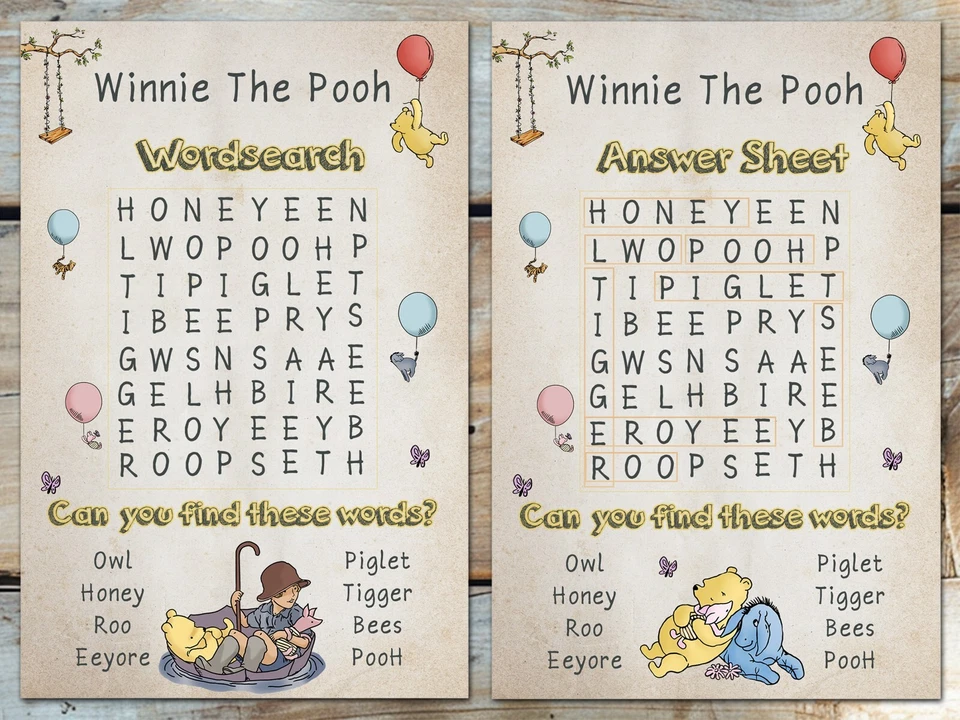 Winnie The Pooh
Wordsearch
H O N E Y E E N
L W O P O O H P
T I P I G L E T
I B E E P R Y S
G W S N S A A E
G E L H B I R E
E R O Y E E Y B
R O O P S E T H
Can you find these words?
Owl
Honey
Roo
Eeyore
Piglet
Tigger
Bees
PooH
Winnie The Pooh
Answer Sheet
H O N E Y E E N
L W O P O O H P
T I P I G L E T
I B E E P R Y S
G W S N S A A E
G E L H B I R E
E R O Y E E Y B
R O O P S E T H
Can you find these words?
Owl
Honey
Roo
Eeyore
Piglet
Tigger
Bees
PooH